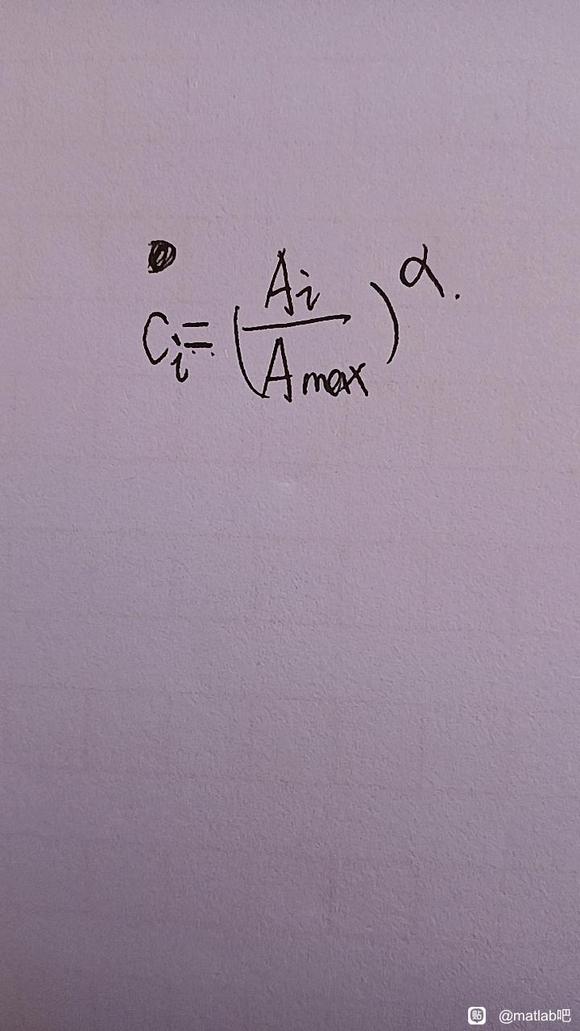 C_i = (A_i / A_max)^α.
贴 @matlab吧